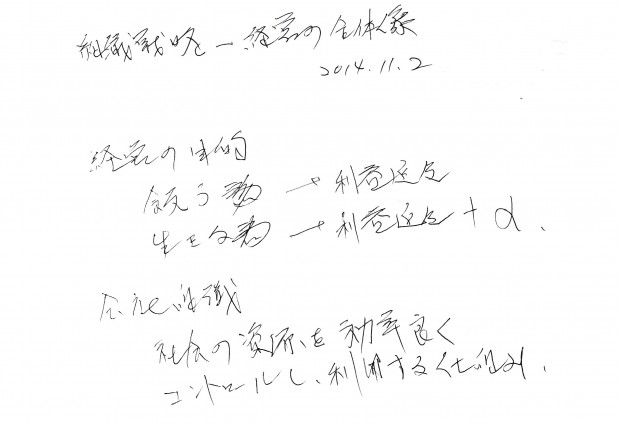 組織戦略－経営の全体像
2014.11.2
経営の目的
飯 → 利益追及
生 → 利益追及+α.
会社組織
社会の資源を効率良く
コントロールし、利用する仕組み.